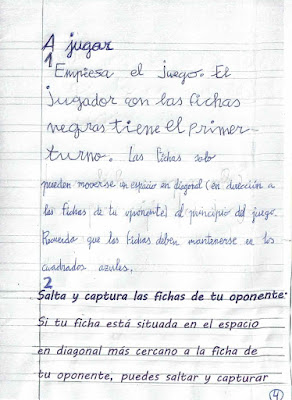 A jugar
1
Empiesa el juego. El
jugador con las fichas
negras tiene el primer-
turno. Las fichas solo
pueden moverse un espacio en diagonal (en dirección a
las fichas de tu oponente) al principio del juego.
Recuerda que las fichas deben mantenerse en los
cuadrados azules.
2
Salta y captura las fichas de tu oponente.
Si tu ficha está situada en el espacio
en diagonal más cercano a la ficha de
tu oponente, puedes saltar y capturar
4